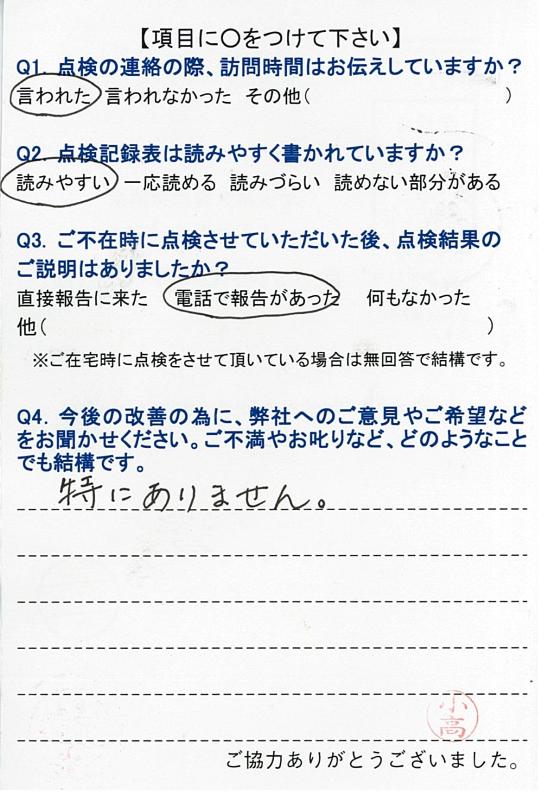 【項目に〇をつけて下さい】
Q1. 点検の連絡の際、訪問時間はお伝えしていますか？
言われた 言われなかった その他( )
Q2. 点検記録表は読みやすく書かれていますか？
読みやすい 一応読める 読みづらい 読めない部分がある
Q3. ご不在時に点検させていただいた後、点検結果の
ご説明はありましたか？
直接報告に来た 電話で報告があった 何もなかった
他( )
※ご在宅時に点検をさせて頂いている場合は無回答で結構です。
Q4. 今後の改善の為に、弊社へのご意見やご希望など
をお聞かせください。ご不満やお叱りなど、どのようなこと
でも結構です。
特にありません。
小高
ご協力ありがとうございました。